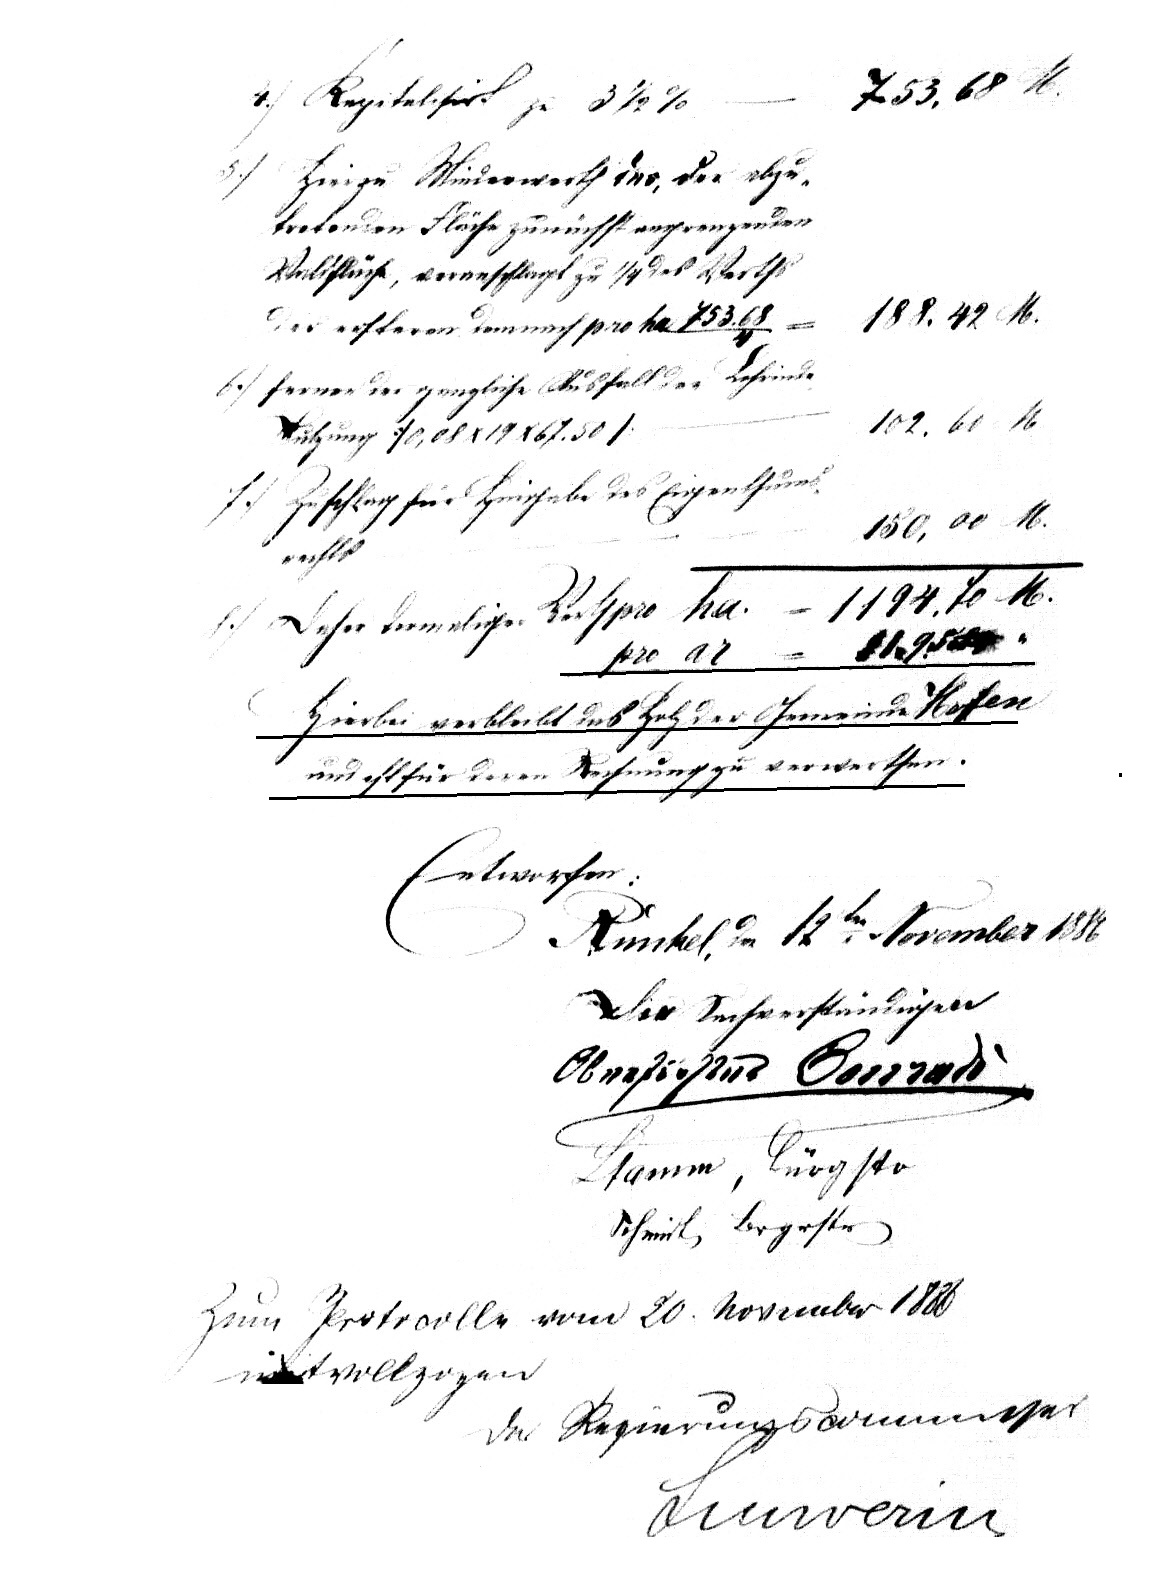 4.) Kapitalisirt zu 3 1/2 % — 753,68 M.
5.) Hierzu Minderwerth der, der abzu-
tretenden Fläche zunächst angrenzenden
Waldfläche, veranschlagt zu 1/4 des Werths
der ersteren demnach pro ha 753.68/4 = 188.42 M.
6.) ferner der gänzliche Ausfall der Lohrinde
Nutzung /0,08 x 19 x 67.50/ — 102.60 M
7.) Zuschlag für Hingabe des Eigenthums-
rechts — 150,00 M.
8.) Daher dermaliger Werth pro ha. = 1194,70 M.
pro ar =
Hierbei verbleibt das Holz der Gemeinde Hofen
und ist für deren Rechnung zu verwerthen.
Entworfen:
Runkel, den 12ten November 1886
Die Sachverständigen
Oberförster Conradi
Stamm, Bürgstr
Schmidt, Brgrstr
Zum Protocolle vom 20. November 1886
mitvollzogen
Der Regierungscommissar